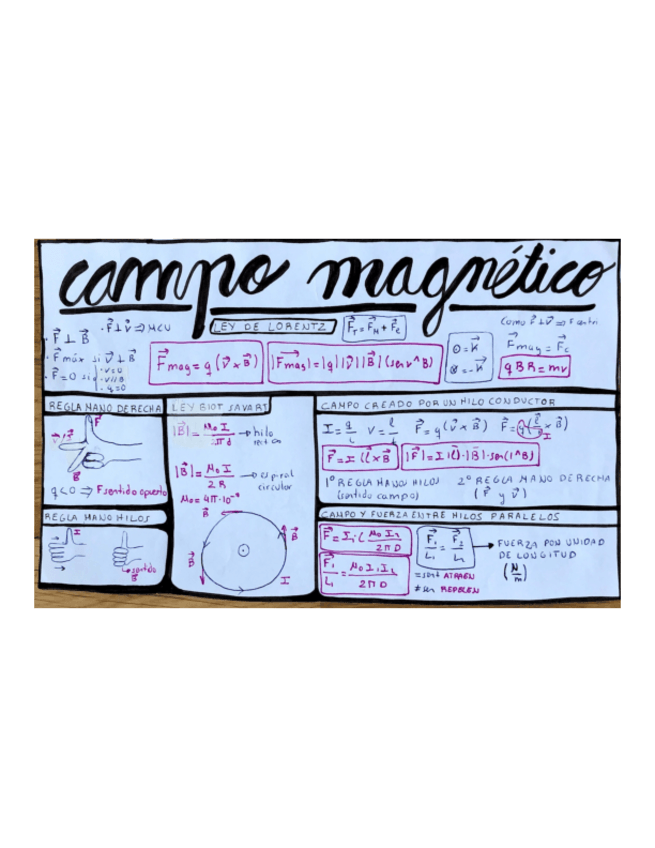 campo magnético
· F⃗ ⊥ B⃗
· F⃗⊥v⃗ ⇒ MCU
· F⃗ máx si v⃗ ⊥ B⃗
· F⃗=0 si
· v=0
· v//B
· q=0
LEY DE LORENTZ
F⃗mag = q (v⃗ x B⃗)
|F⃗mag| = |q| |v⃗| |B⃗| (sen v^B)
⊙ = k⃗
⊗ = -k⃗
Como F⃗⊥v⃗ ⇒ F centri
F⃗mag = F⃗c
qBR = mv
REGLA MANO DERECHA
F⃗
B⃗
q<0 ⇒ F sentido opuesto
REGLA MANO HILOS
I
sentido
B⃗
LEY BIOT SAVART
|B⃗| = μ₀ I / 2πd → hilo
|B⃗| = μ₀ I / 2R → espiral
circular
μ₀ = 4π·10
B⃗
B⃗
B⃗
I
CAMPO CREADO POR UN HILO CONDUCTOR
I = q/t v = l/t F⃗ = q (v⃗ x B⃗) F⃗ = q (l⃗/t x B⃗)
I
F⃗ = I (l⃗ x B⃗) |F⃗| = I |l⃗|·|B⃗|·sen(l^B)
1º REGLA MANO HILOS
(sentido campo)
2º REGLA MANO DERECHA
(F⃗ y v⃗)
CAMPO Y FUERZA ENTRE HILOS PARALELOS
F⃗ = I₁ L μ₀ I₂ / 2πD
F⃗₁/L₁ = μ₀ I₁ I₂ / 2πD
F⃗₁/L₁ = F⃗₂/L₂ → FUERZA POR UNIDAD
DE LONGITUD
(N/m)
= sent ATRAEN
≠ sen REPELEN